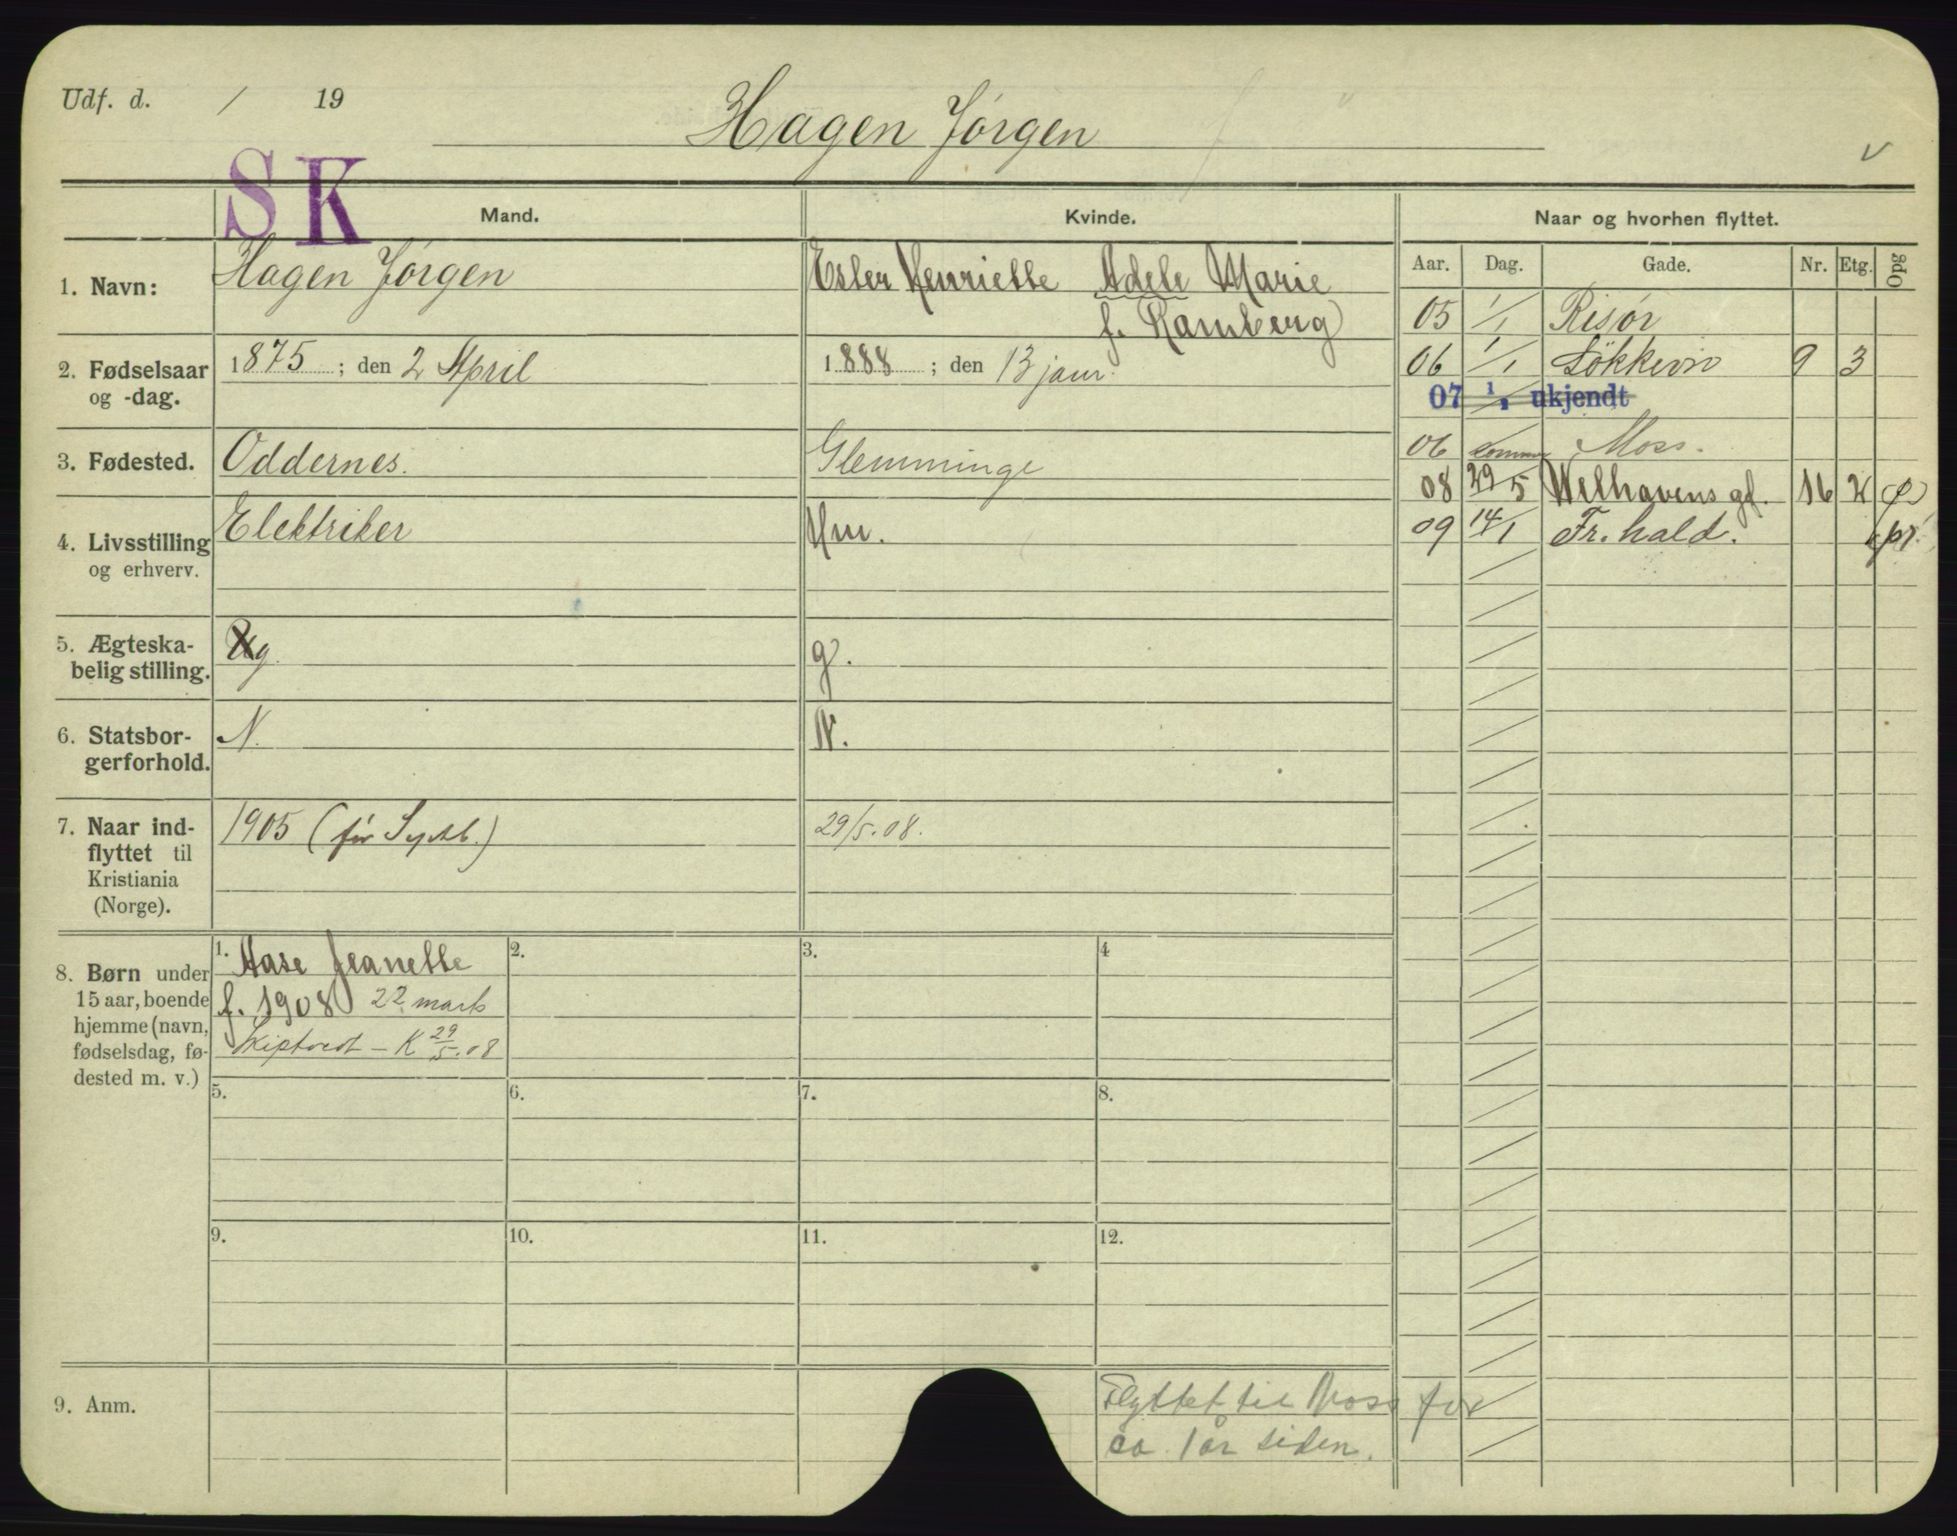 Udf. d. / 19
Hagen Jørgen
v
SK
Mand.
Kvinde.
Naar og hvorhen flyttet.
Aar. Dag. Gade. Nr. Etg. Opg
1. Navn:
Hagen Jørgen
Ester Henriette Adele Marie
f. Ramberg
2. Fødselsaar
og -dag.
1875 ; den 2 April
1888 ; den 13 janr.
3. Fødested.
Oddernes.
Glemminge
4. Livsstilling
og erhverv.
Elektriker
Hm.
5. Ægteska-
belig stilling.
Ug.
g.
6. Statsbor-
gerforhold.
N.
N.
7. Naar ind-
flyttet til
Kristiania
(Norge).
1905 (før Sydtb.)
29/5.08.
8. Børn under
15 aar, boende
hjemme (navn,
fødselsdag, fø-
dested m. v.)
1. Aase Jeanette
f. 1908 22 marts
Skiptvedt - K 29/5.08
2.
3.
4
5.
6.
7.
8.
9.
10.
11.
12.
9. Anm.
Flyttet til Moss for
ca. 1 år siden.
05 1/1 Risør
06 1/1 Løkkevn 9 3
07 1/1 ukjendt
06 sommer Moss.
08 29/5 Welhavens gt. 16 2
09 14/1 Fr.hald.